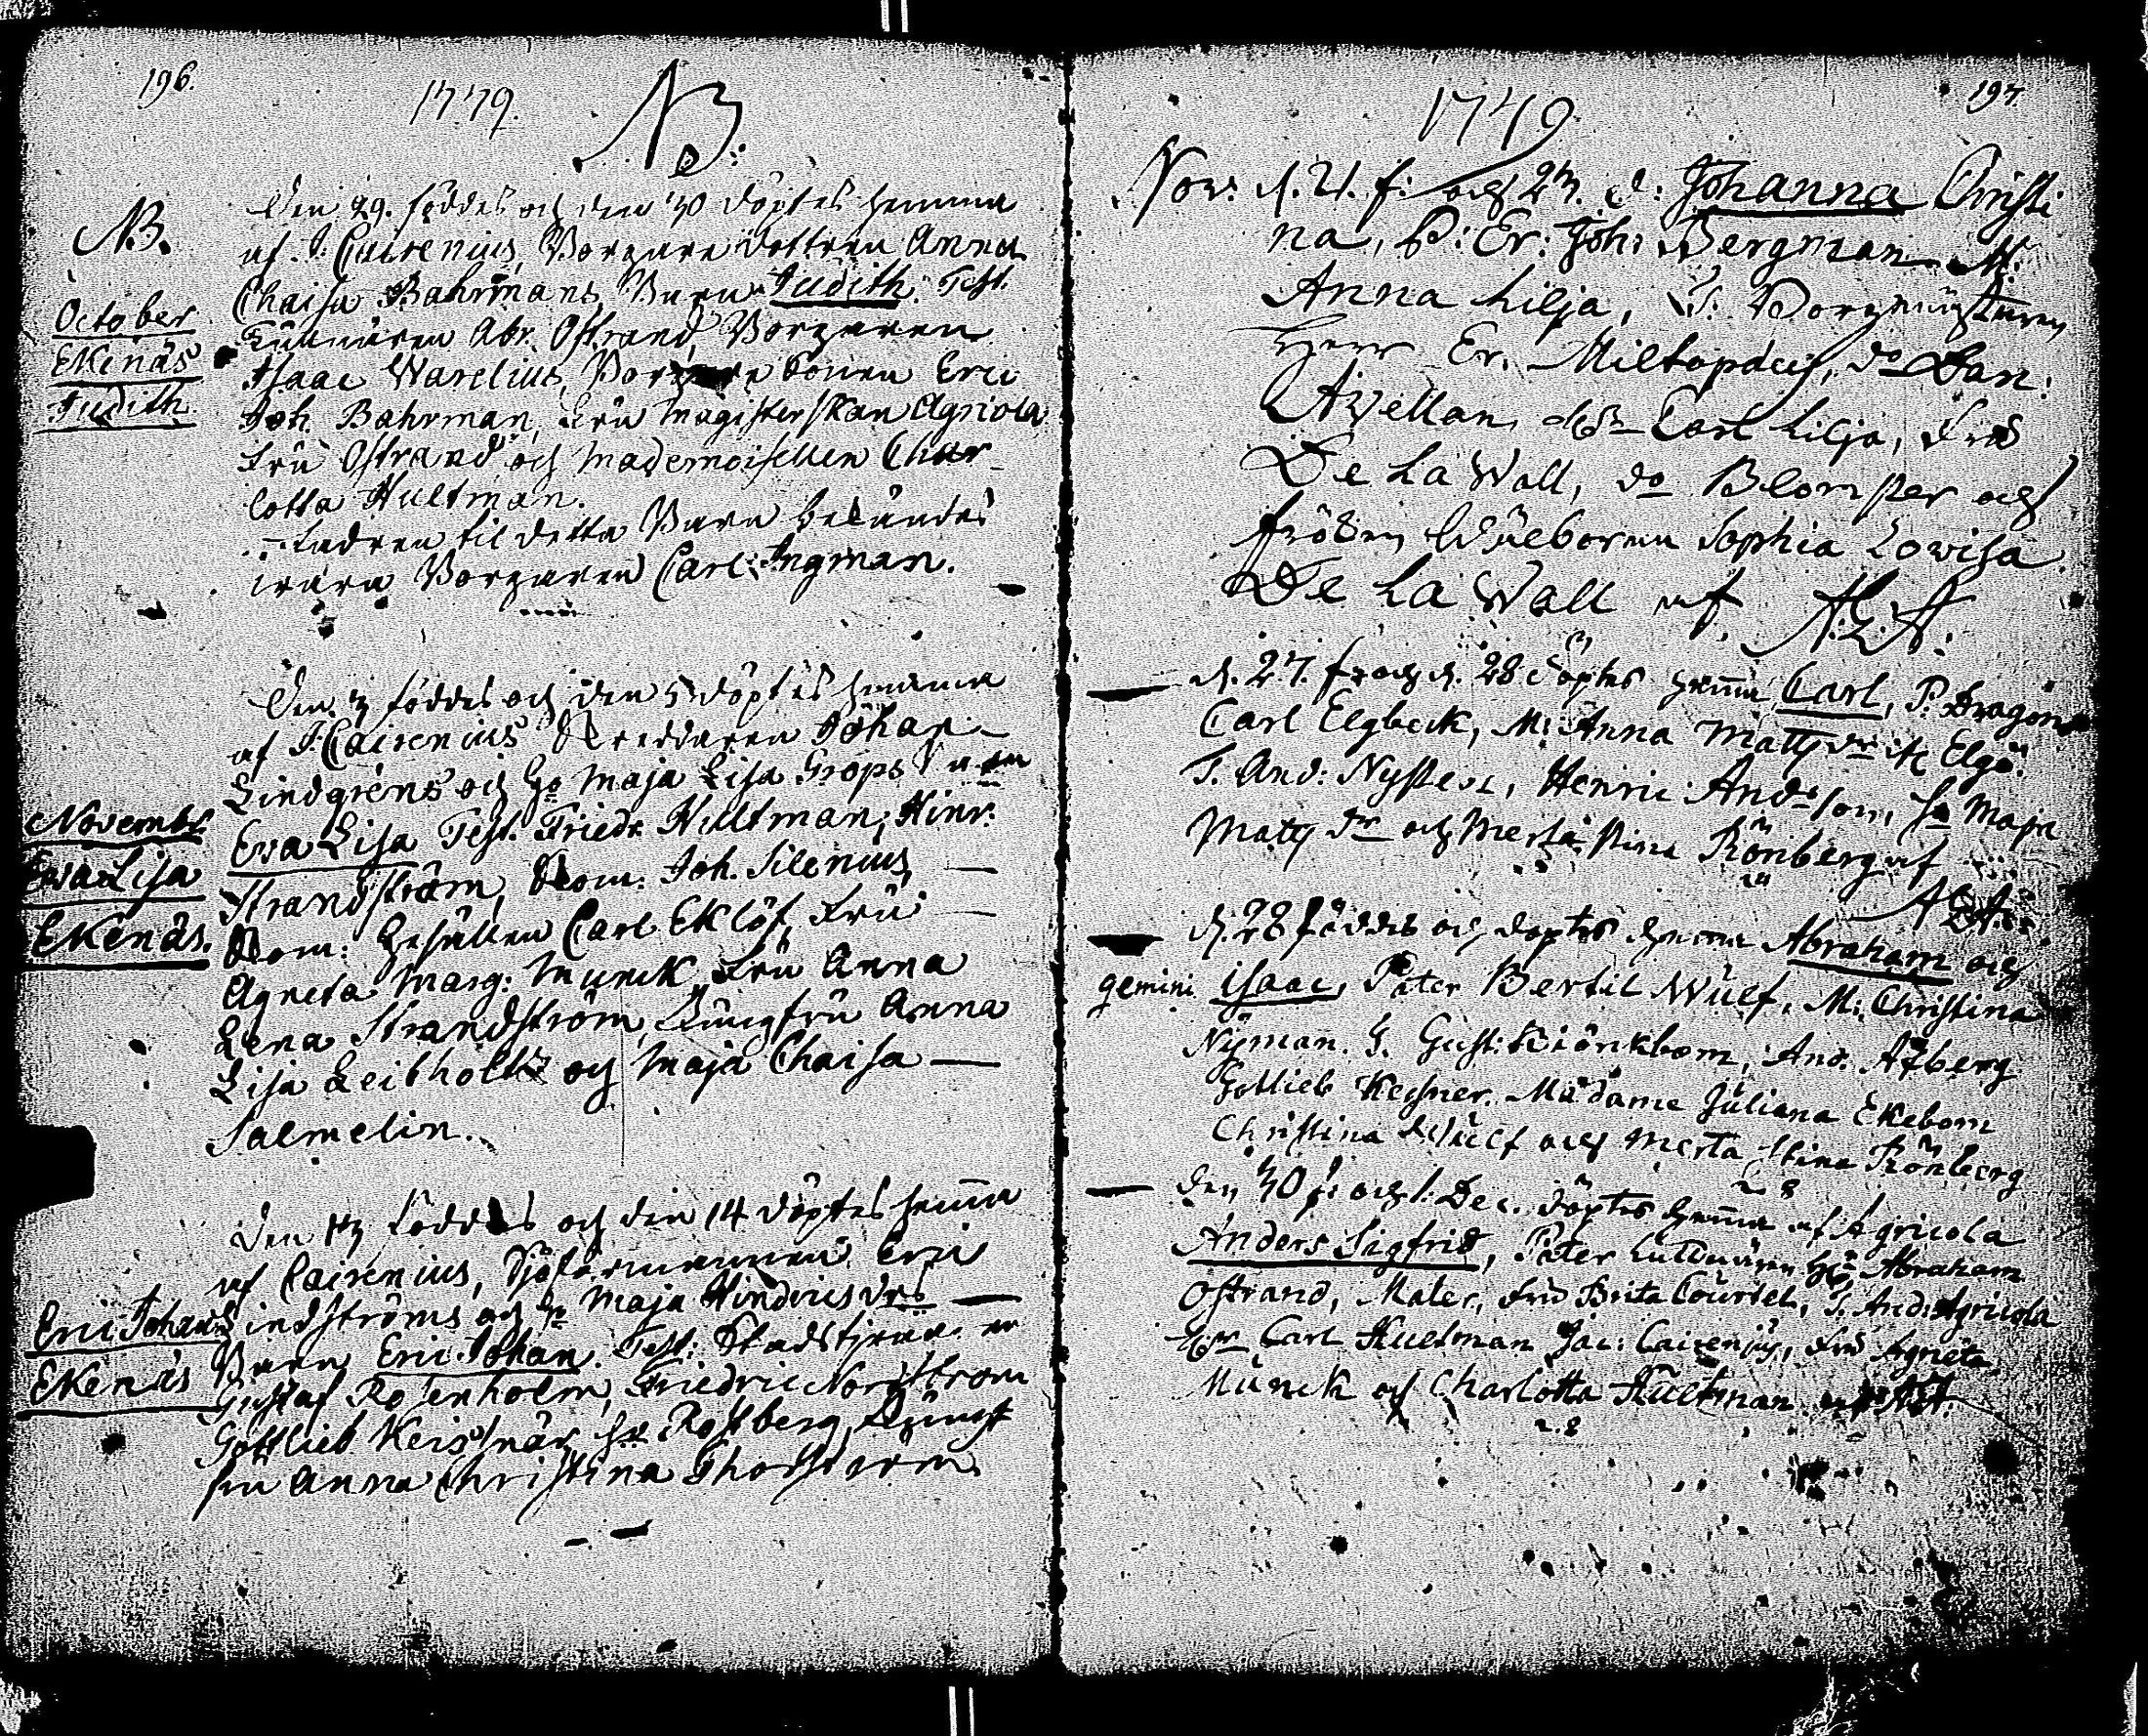 196.
1779.
NB:
NB.
October
Ekenäs
Judith.
Den 29. föddes och den 30 döptes hemma
af J: Cairenius, Borgare dottren Anna
Chaisa Bahrmans Barn Judith. Test.
Tullnären Abr. Ostrand, Borgaren
Isaac Warelius, Borgare Sonen Eric
Joh. Bahrman, Fru Magisterskan Agricola
Fru Ostrand och Mademoisellen Char-
lotta Hultman.
Fadren til detta Barn
Borgaren Carl Ingman.
Novembr.
Eva Lisa
Ekenäs.
Den 3 föddes och den 5 döptes hemma
af J: Cairenius Johan
Lindgrens och Ho Maja Lisa Grops Barn
Eva Lisa Test. Friedr. Hultman, Hinr:
Strandström, Dom: Joh. Silenius,
Dom: Gesällen Carl Eklöf, Fru
Agneta Marg: Munck, Fru Anna
Lena Strandström, Jungfru Anna
Lisa Leibholtz och Maja Chaisa
Salmelin.
Eric Johan
Ekenäs
Den 13 föddes och den 14 döptes hemma
af Cairenius, Eric
Lindströms och Maja Hindricsdrs
Barn Eric Johan. Test:
Gustaf Rosenholm, Friedric Nordström
Gottlieb Keisnär, Rostberg, Jungf
fru Anna Christina Thorström.
197.
1779.
Nov: d. 21. f: och 23. d: Johanna Christi
na, P: Er: Joh: Bergman M:
Anna Lilja, T: Borgmästaren
Herr Er. Miltopaeus, do Dan:
Avellan, Hr Carl Lilja, Fru
De La Wall, do Blomster och
fröken Wälborna Sophia Lovisa
De La Wall af A:G:A:
d. 27. f: och d. 28 döptes hema Carl, P. Dragon
Carl Elgbeck, M: Anna Matts dr ifr Elgö.
T. And: Nysten, Henric Andson, Ho Maja
Matts dr och Merta Stina Rönberg af
AGA.
d. 28 föddes och döptes hemma Abraham och
gemini Isaac, Pater Bertil Wulf, M: Christina
Nyman. T. Gust: Kiörckbom, And: Asberg
Gottlieb Kechner. Madame Juliana Ekebom
Christina Wulf och Merta Stina Rönberg
Den 30 f: och 1. Dec. döptes hema af Agricola
Anders Sigfrid, Pater Tullnären Hr Abraham
Ostrand, Mater, Fru Brita Courtel, T. And: Agricola
Hr Carl Hultman Jac: Cairenius, Fru Agneta
Munck och Charlotta Hultman